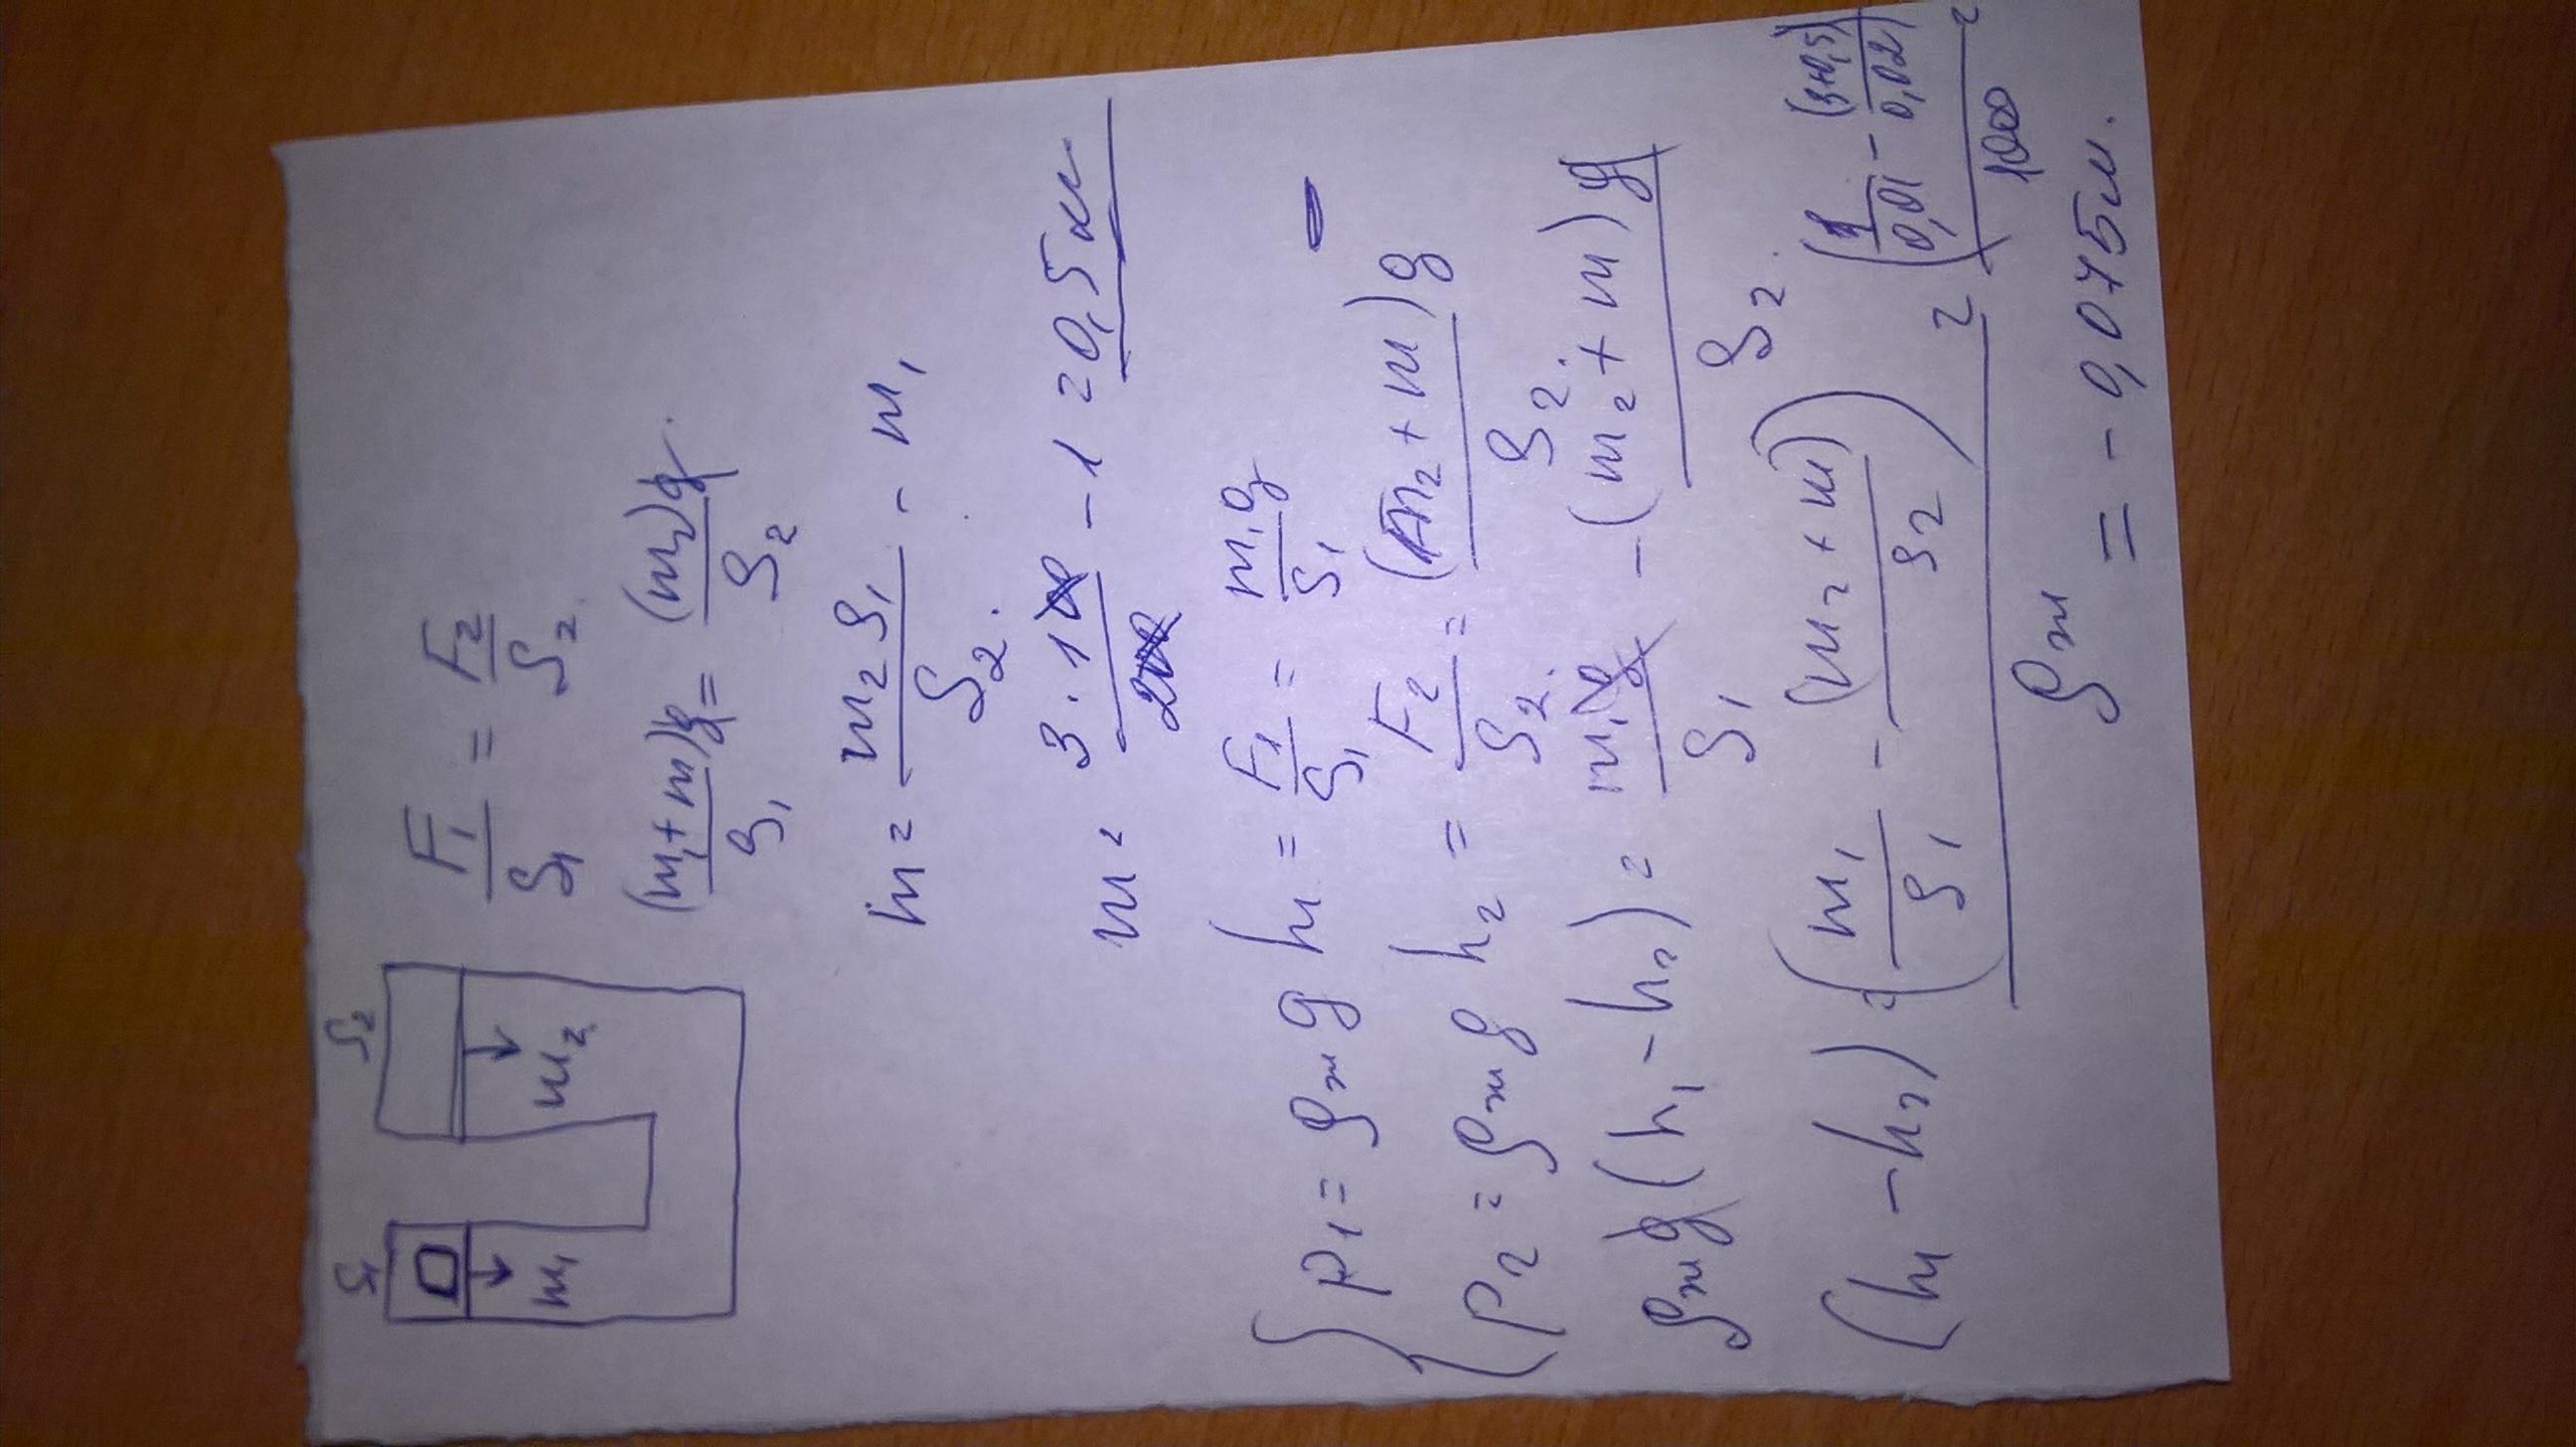 S₁ S₂
m₁ m₂
F₁/S₁ = F₂/S₂.
(m₁+m)g/S₁ = (m₂)g/S₂.
m = m₂S₁/S₂. - m₁
m = 3·100/200 - 1 = 0,5 кг
{ P₁ = ρж g h₁ = F₁/S₁ = m₁g/S₁ -
P₂ = ρж g h₂ = F₂/S₂. = (m₂+m)g/S₂.
ρж g (h₁ - h₂) = m₁g/S₁ - (m₂+m)g/S₂.
(h₁ - h₂) = (m₁/S₁ - (m₂+m)/S₂)/ρж = (1/0,01 - (3+0,5)/0,02)/1000 =
= - 0,075м.